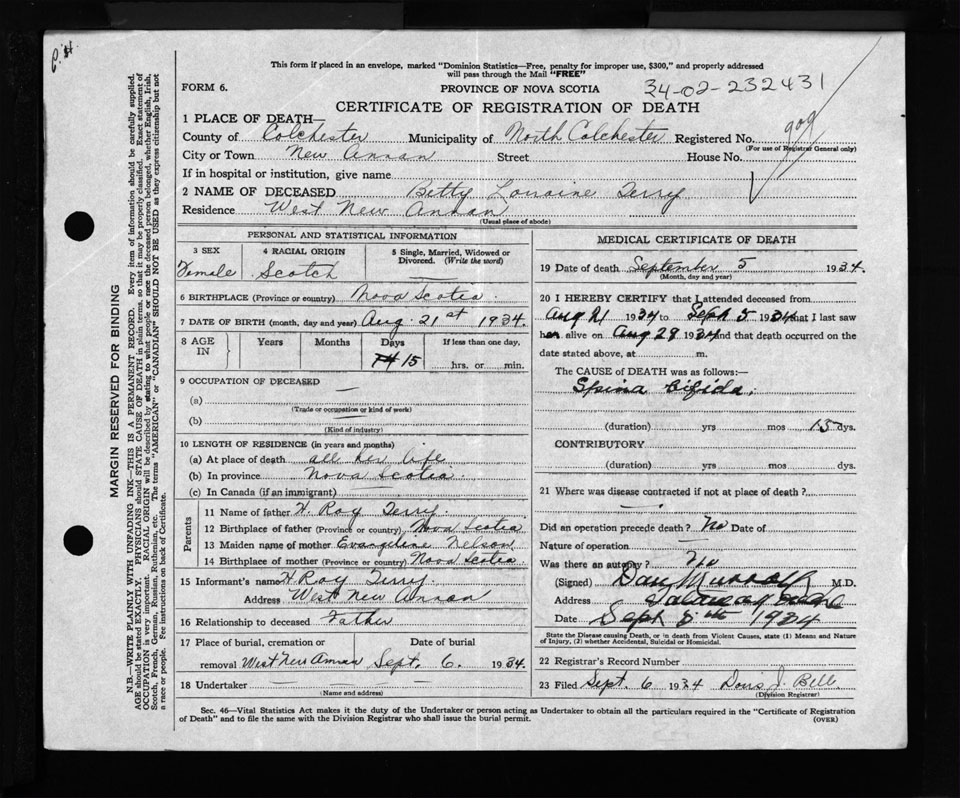 This form if placed in an envelope, marked "Dominion Statistics—Free, penalty for improper use, $300," and properly addressed
will pass through the Mail "FREE"
FORM 6. PROVINCE OF NOVA SCOTIA 34-02-232431
CERTIFICATE OF REGISTRATION OF DEATH
1 PLACE OF DEATH—
County of Colchester Municipality of North Colchester Registered No. 909
(For use of Registrar General only)
City or Town New Annan Street House No.
If in hospital or institution, give name
2 NAME OF DECEASED Betty Lorraine Terry
Residence West New Annan
(Usual place of abode)
PERSONAL AND STATISTICAL INFORMATION
3 SEX 4 RACIAL ORIGIN 5 Single, Married, Widowed or
Divorced. (Write the word)
Female Scotch
6 BIRTHPLACE (Province or country) Nova Scotia
7 DATE OF BIRTH (month, day and year) Aug. 21st 1934.
8 AGE IN Years Months Days If less than one day,
15 hrs. or min.
9 OCCUPATION OF DECEASED —
(a)
(Trade or occupation or kind of work)
(b)
(Kind of industry)
10 LENGTH OF RESIDENCE (in years and months)
(a) At place of death all her life
(b) In province Nova Scotia
(c) In Canada (if an immigrant)
Parents
11 Name of father H. Roy Terry
12 Birthplace of father (Province or country) Nova Scotia
13 Maiden name of mother Evangeline Nelson
14 Birthplace of mother (Province or country) Nova Scotia
15 Informant's name H Roy Terry.
Address West New Annan
16 Relationship to deceased Father
17 Place of burial, cremation or Date of burial
removal West New Annan Sept. 6. 1934.
18 Undertaker
(Name and address)
MEDICAL CERTIFICATE OF DEATH
19 Date of death September 5 1934.
(Month, day and year)
20 I HEREBY CERTIFY that I attended deceased from
Aug 21 1934 to Sept 5 1934 that I last saw
her alive on Aug 29 1934 and that death occurred on the
date stated above, at m.
The CAUSE of DEATH was as follows:—
Spina bifida.
(duration) yrs mos 15 dys.
CONTRIBUTORY
(duration) yrs. mos. dys.
21 Where was disease contracted if not at place of death?
Did an operation precede death? No Date of
Nature of operation —
Was there an autopsy? No
(Signed) Dan Murray M.D.
Address
Date Sept 8th 1934
State the Disease causing Death, or in death from Violent Causes, state (1) Means and Nature
of Injury, (2) whether Accidental, Suicidal or Homicidal.
22 Registrar's Record Number
23 Filed Sept. 6 1934 Doris J. Bell
(Division Registrar)
Sec. 46—Vital Statistics Act makes it the duty of the Undertaker or person acting as Undertaker to obtain all the particulars required in the "Certificate of Registration
of Death" and to file the same with the Division Registrar who shall issue the burial permit. (OVER)
MARGIN RESERVED FOR BINDING
N.B.—WRITE PLAINLY WITH UNFADING INK—THIS IS A PERMANENT RECORD. Every item of information should be carefully supplied.
AGE should be stated EXACTLY. PHYSICIANS should STATE CAUSE OF DEATH in plain terms, so that it may be properly classified. Exact statement of
OCCUPATION is very important. RACIAL ORIGIN will be described by stating to what people or race the deceased person belonged, whether English, Irish,
Scotch, French, German, Russian, Ruthenian, etc. The terms "AMERICAN" or "CANADIAN" SHOULD NOT BE USED as they express citizenship but not
a race or people. Fee instructions on back of Certificate.